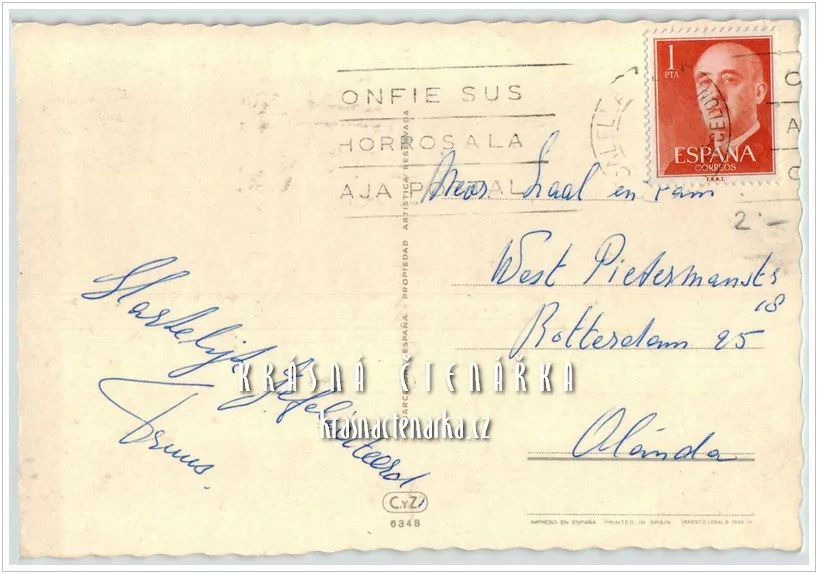 1
PTA
ESPAÑA
CORREOS
F.N.M.T.
ONFIE SUS
HORROS A LA
AJA POSTAL
Mevr. en Fam
2.-
West Pietermanstr
18
Rotterdam 25
Olánda
Hartelijk gefeliciteerd
Truus.
KRÁSNÁ ČTENÁŘKA
krasnactenarka.cz
ESPAÑA - PROPIEDAD ARTISTICA RESERVADA
C.yZ.
6348
IMPRESO EN ESPAÑA PRINTED IN SPAIN DEPOSITO LEGAL B.